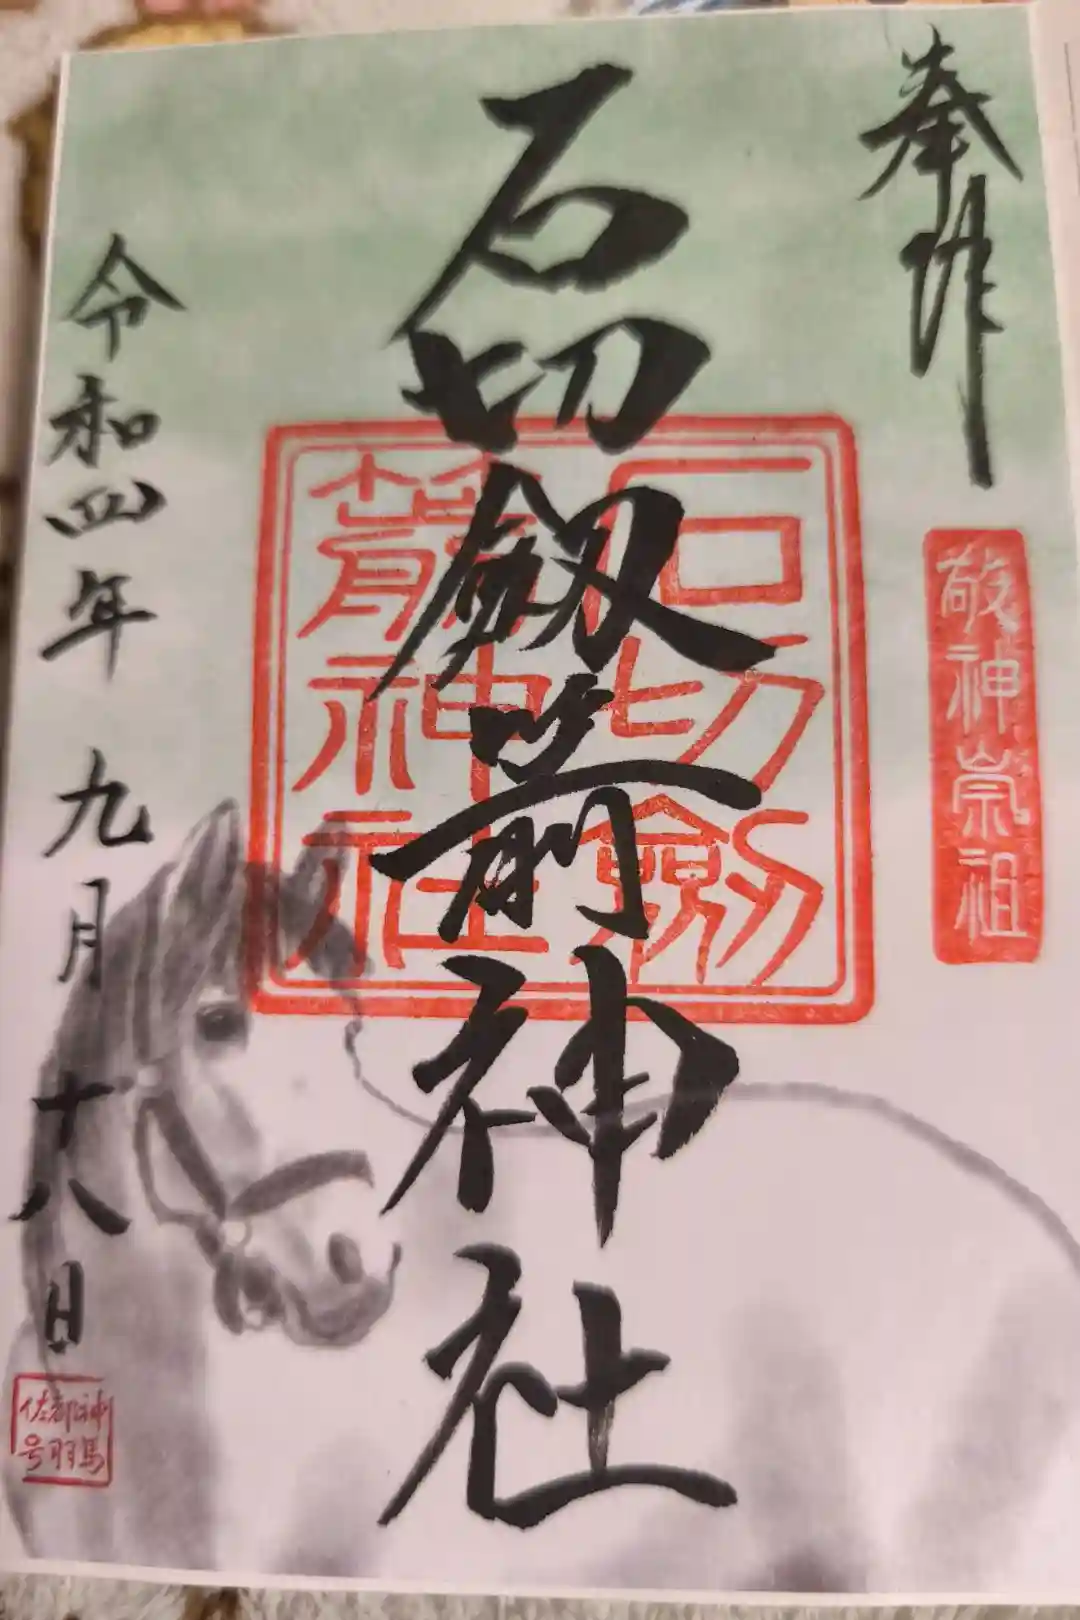 奉拝
敬神崇祖
石切劔箭神社
石切劔
箭神社
令和四年九月十八日
神馬
都羽
佐号